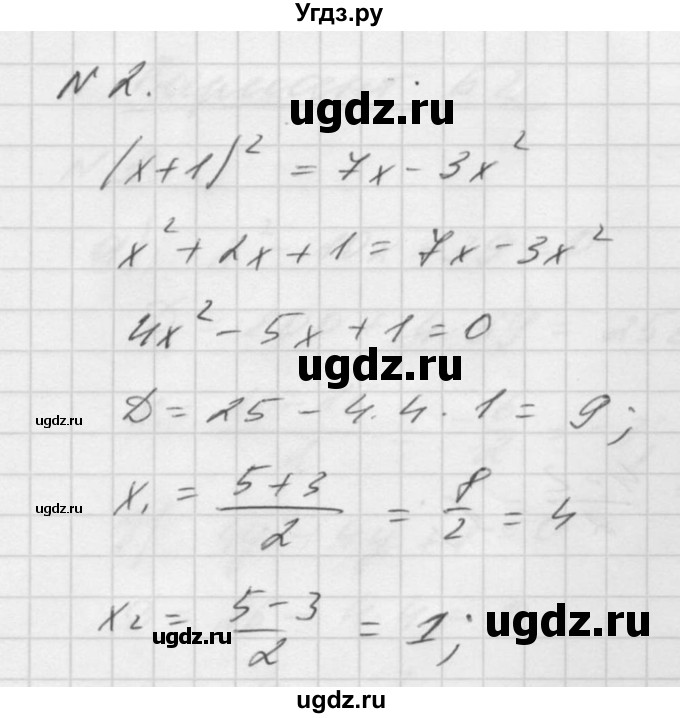 Угдз.ру
N 2.
ugdz.ru
(x+1)² = 7x - 3x²
x² + 2x + 1 = 7x - 3x²
4x² - 5x + 1 = 0
ugdz.ru
D = 25 - 4.4.1 = 9;
ugdz.ru
x₁ = (5+3)/2 = 8/2 = 4
ugdz.ru
x₂ = (5-3)/2 = 1;
ugdz.ru
ugdz.ru
ugdz.ru